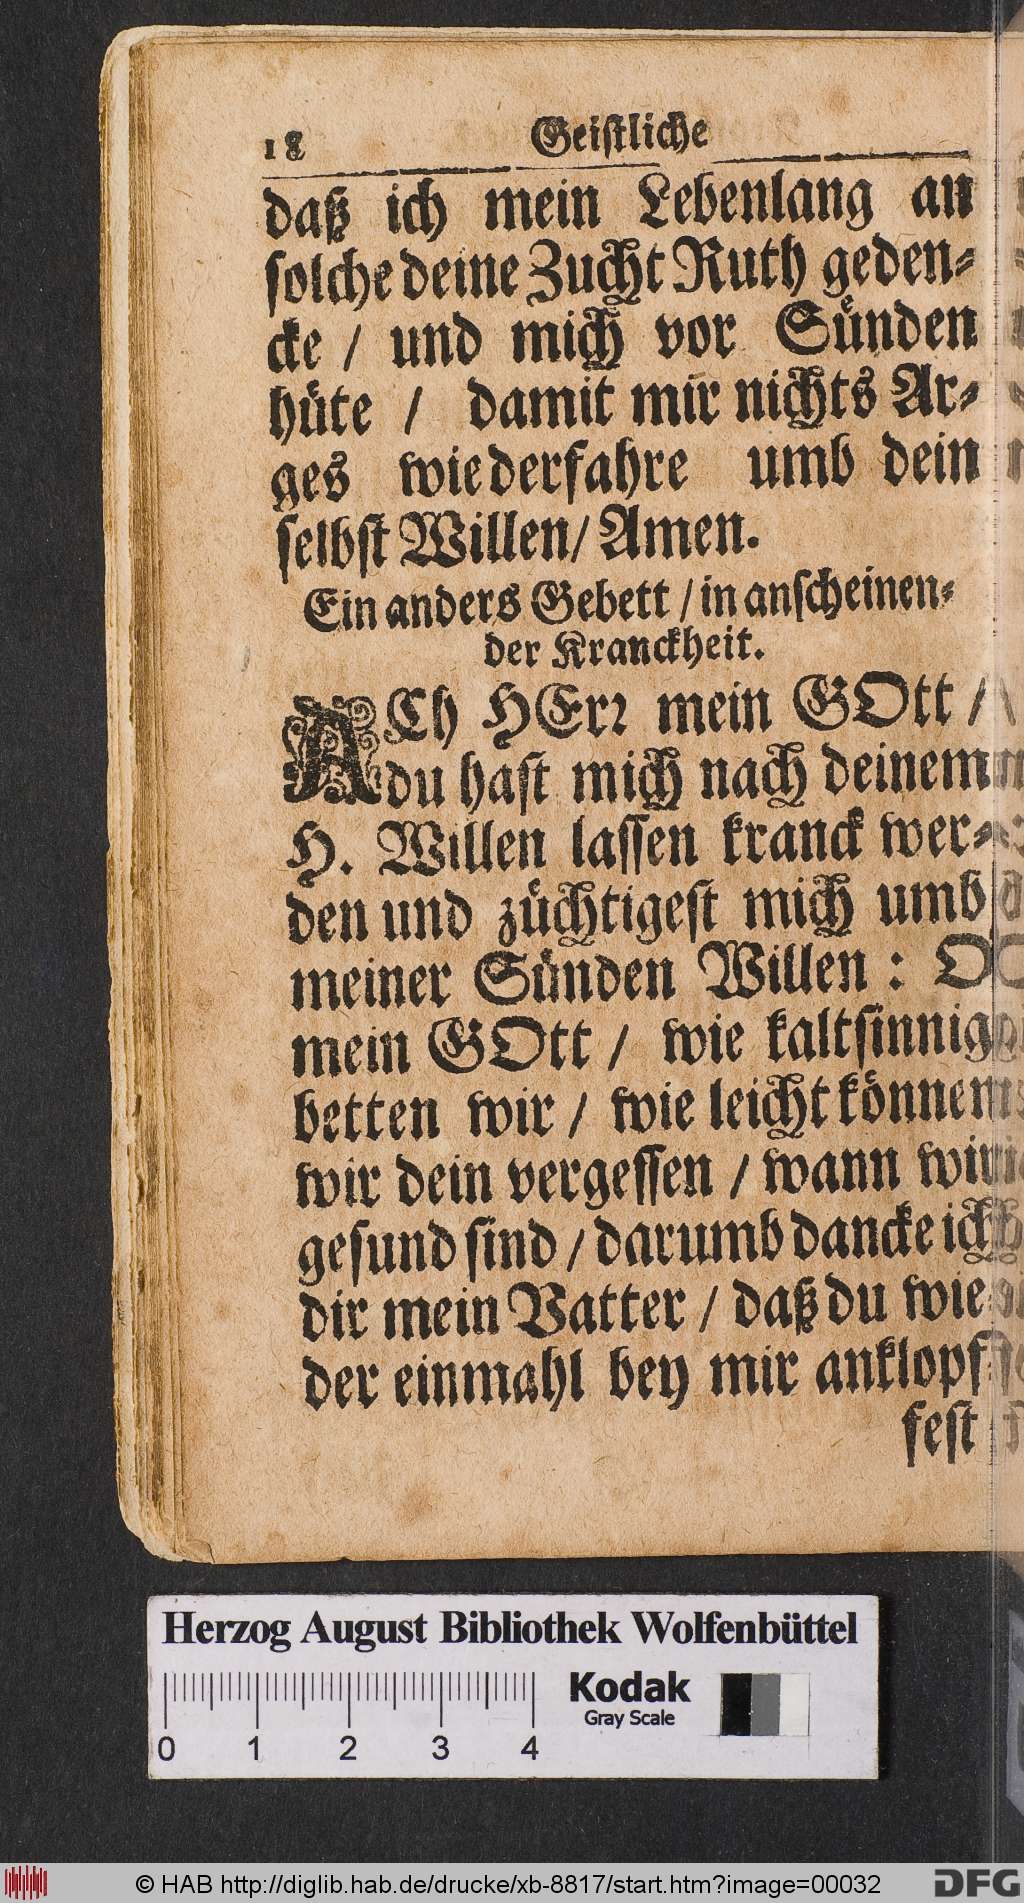 18 Geistliche
daß ich mein Lebenlang an
solche deine Zucht Ruth geden-
cke / und mich vor Sünden
hüte / damit mir nichts Ar-
ges wiederfahre umb dein
selbst Willen / Amen.
Ein anders Gebett / in anscheinen-
der Kranckheit.
ACh HErr mein GOtt /
du hast mich nach deinem
H. Willen lassen kranck wer-
den und züchtigest mich umb
meiner Sünden Willen : O
mein GOtt / wie kaltsinnig
betten wir / wie leicht können
wir dein vergessen / wann wir
gesund sind / darumb dancke ich
dir mein Vatter / daß du wie-
der einmahl bey mir anklopf-
fest
Herzog August Bibliothek Wolfenbüttel
Kodak
Gray Scale
0 1 2 3 4
© HAB http://diglib.hab.de/drucke/xb-8817/start.htm?image=00032
DFG